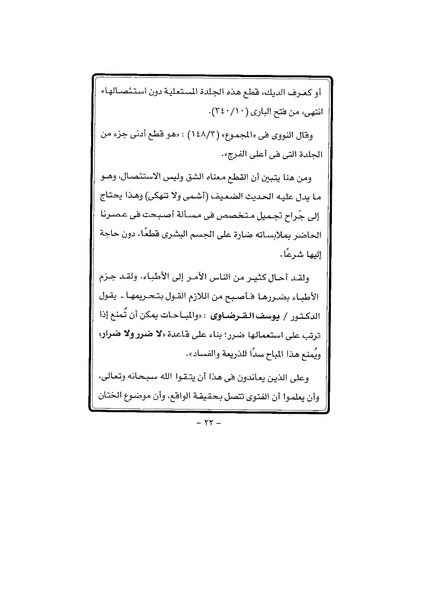 أو كعرف الديك، قطع هذه الجلدة المستعلية دون أستئصالها»
انتهى، من فتح البارى (٣٤٠/١٠).
وقال النووى فى «المجموع» (١٤٨/٣) : «هو قطع أدنى جزء من
الجلدة التى فى أعلى الفرج».
ومن هنا يتبين أن القطع معناه الشق وليس الاستئصال، وهو
ما يدل عليه الحديث الضعيف (أشمى ولا تنهكى) وهذا يحتاج
إلى جّراح تجميل متخصص فى مسألة أصبحت فى عصرنا
الحاضر بملابساته ضارة على الجسم البشرى قطعًا، دون حاجة
إليها شرعًا.
ولقد أحال كثير من الناس الأمر إلى الأطباء، ولقد جزم
الأطباء بضررها فأصبح من اللازم القول بتحريمها ـ يقول
الدكتور / يوسف القرضاوى : «والمباحات يمكن أن تُمنع إذا
ترتب على استعمالها ضرر؛ بناء على قاعدة «لا ضرر ولا ضرار»
ويُمنع هذا المباح سدًا للذريعة والفساد».
وعلى الذين يعاندون فى هذا أن يتقوا الله سبحانه وتعالى،
وأن يعلموا أن الفتوى تتصل بحقيقة الواقع، وأن موضوع الختان
- ٢٢ -